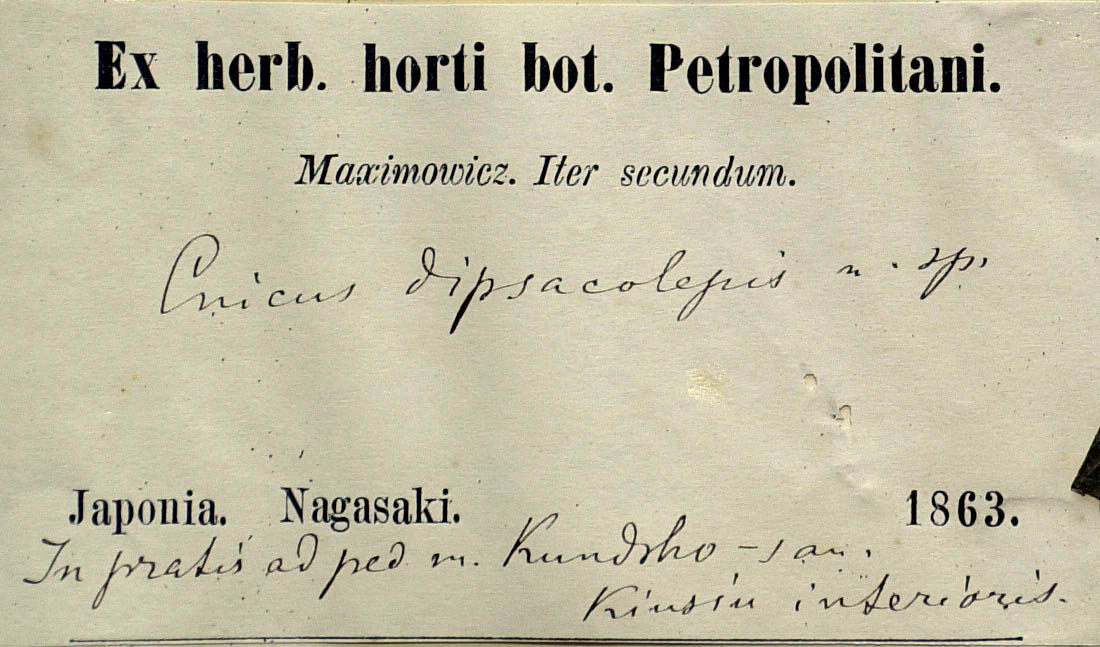 Ex herb. horti bot. Petropolitani.
Maximowicz. Iter secundum.
Cnicus dipsacolepis n. sp.
Japonia. Nagasaki. 1863.
In pratis ad ped m. Kundsho-san.
Kiusiu interioris.